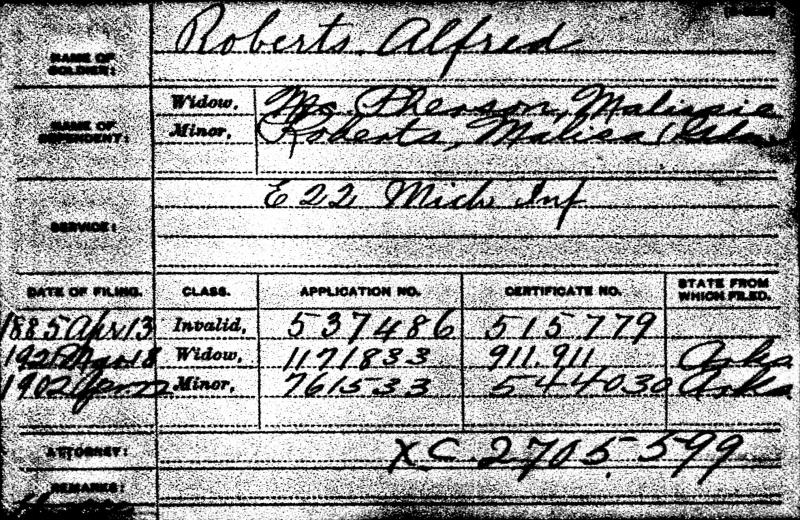 Roberts. Alfred
NAME OF
SOLDIER:
Widow, Mc Pherson, Malissie
NAME OF
DEPENDENT:
Minor, Roberts, Malissa
E 22 Mich Inf
SERVICE:
DATE OF FILING. CLASS. APPLICATION NO. CERTIFICATE NO. STATE FROM
WHICH FILED.
1885 Apr 13 Invalid, 537486 515779
Mar 18 Widow, 1171833 911.911 Arks
1902 Minor, 761533 544030 Arks
ATTORNEY: XC 2705.599
REMARKS: